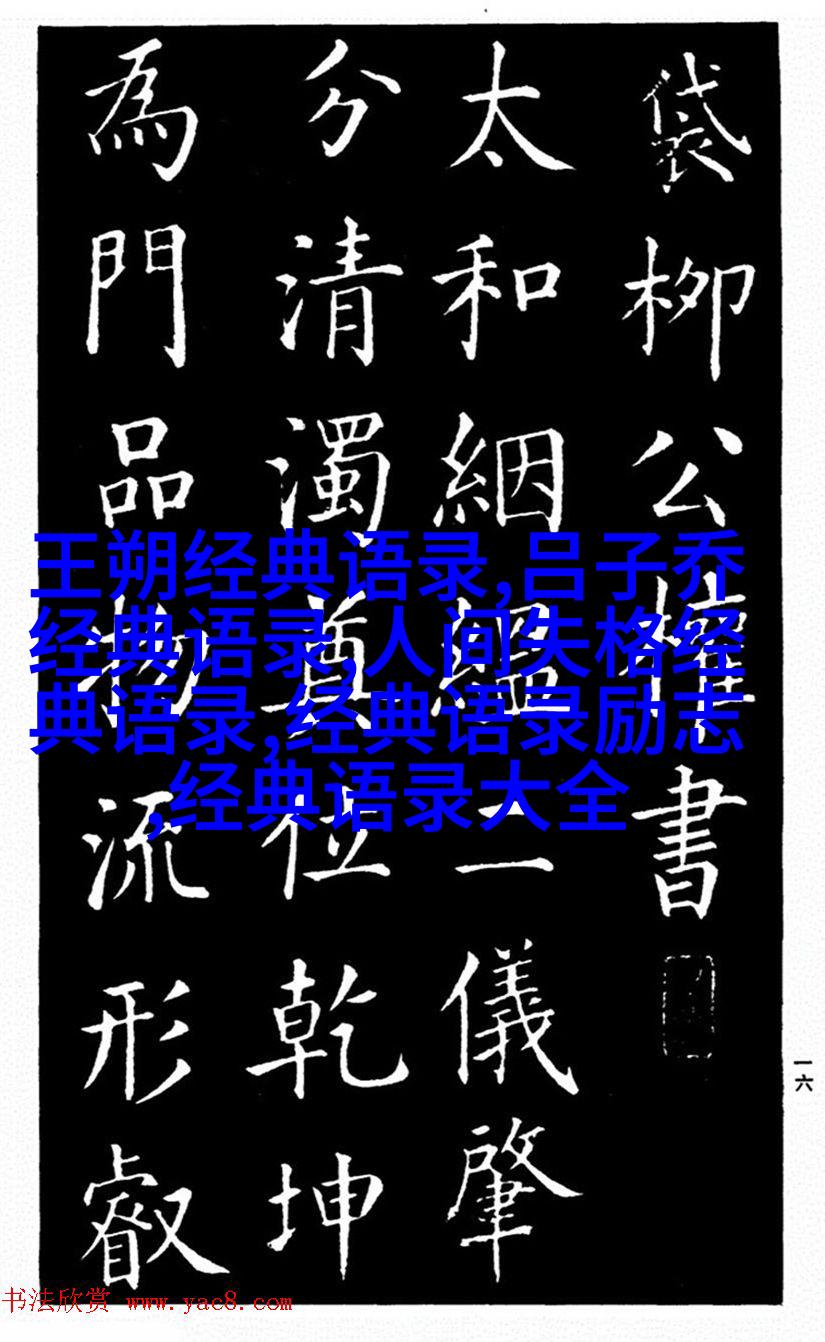 袋柳公權書
太和絪縕二儀肇
分清濁奠位乾坤
為門品物流形叡
王朔经典语录,吕子乔
经典语录,人间失格经
典语录,经典语录励志
,经典语录大全
一六
书法欣赏 www.yac8.com